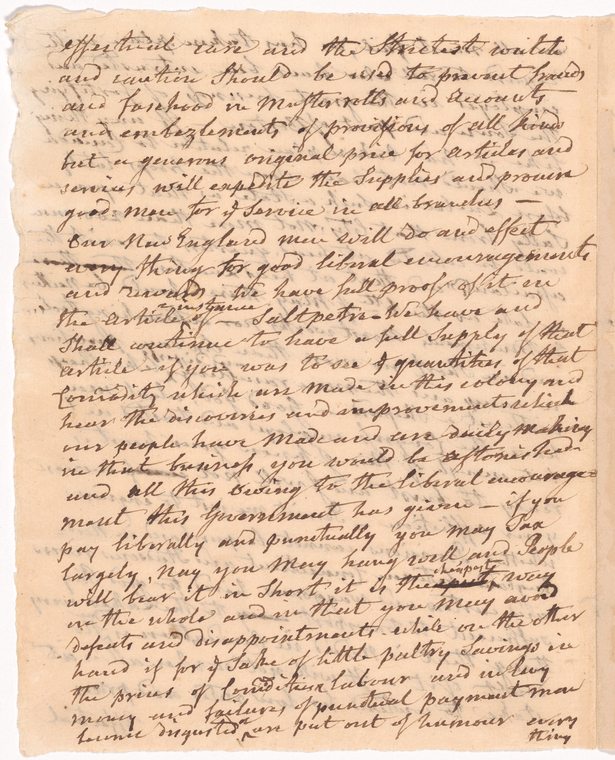 effectual care and the Strictest watch
and caution Should be used to prevent frauds
and falsehood in Muster rolls and Accounts
and embezlements of provisions of all kinds
but a generous original price for articles and
services will expedite the Supplies and procure
good men for ye Service in all branches —
Our New England men will do and effect
every thing for good liberal encouragements
and rewards. We have full proof of it in
the article instance of Saltpetre. We have and
Shall continue to have a full Supply of that
article — if you was to see ye quantities of that
Comodity which are made in this colony and
hear the discoveries and improvements which
our people have made and are daily making
in that business, you would be astonished
and all this owing to the liberal encourage=
ment this Government has given — if you
pay liberally and punctually you may Tax
largely, nay you may hang well and People
will bear it in Short it is the cheapest way
on the whole and in that you may avoid
defeats and disappointments while on the other
hand if for ye Sake of little paltry Savings in
the prices of Comodities & labour and in
money and failures of punctual payment men
become disgusted & are put out of humour every
thing